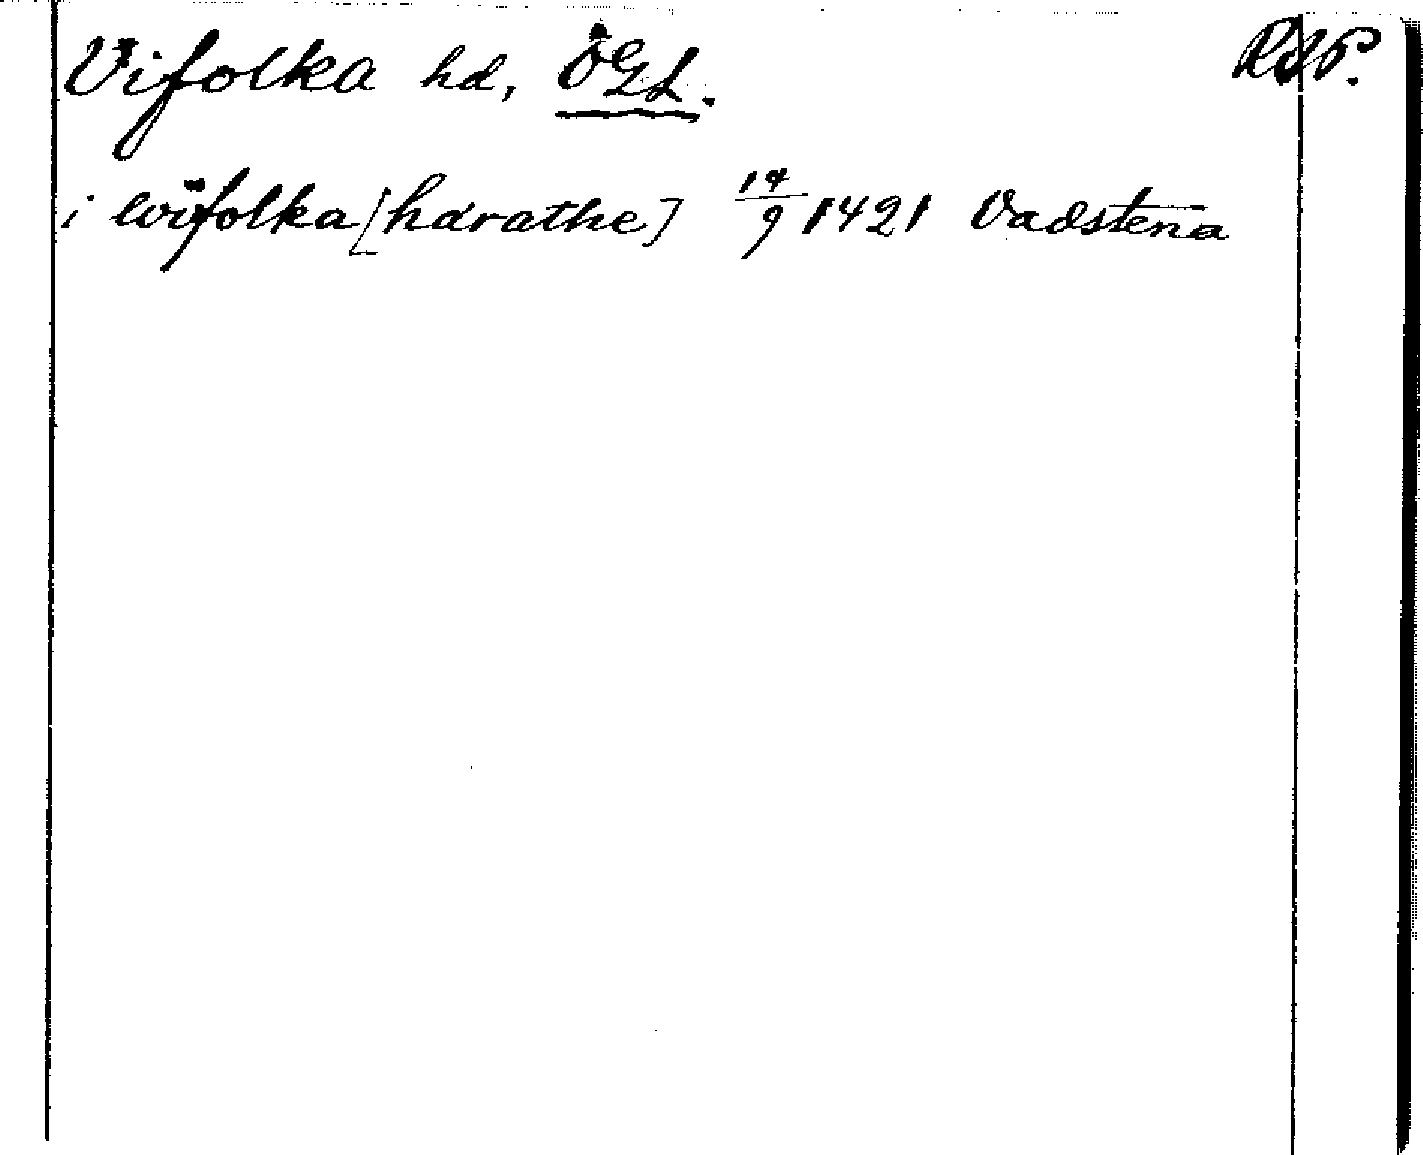 Vifolka hd, ÖGL. RAP.
i wifolka [hærathe] 14/9 1421 Vadstena